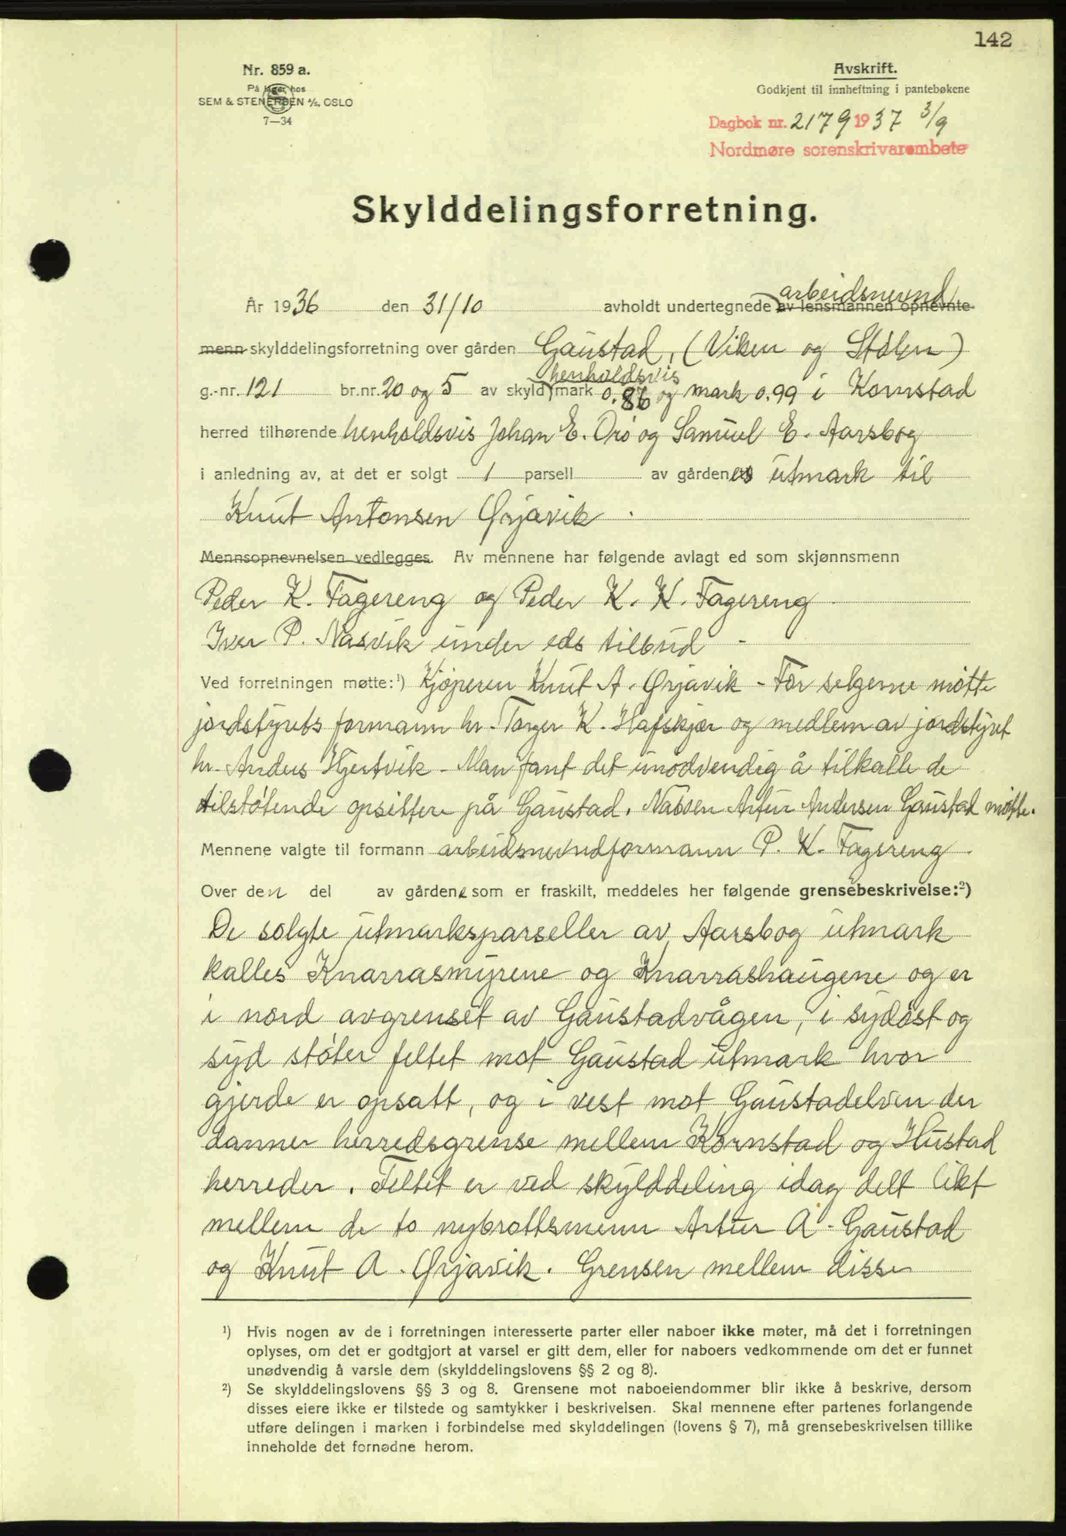 142
Nr. 859 a.
På lager hos
SEM & STENERSEN A/S, OSLO
7—34
Avskrift.
Godkjent til innheftning i pantebøkene
Dagbok nr. 2179 1937 3/9
Nordmøre sorenskriverembete
Skylddelingsforretning.
arbeidsnevnd
År 1936 den 31/10 avholdt undertegnede av lensmannen opnevnte
menn skylddelingsforretning over gården Gaustad, (Viken og Stølen)
henholdsvis
g.-nr. 121 br.nr. 20 og 5 av skyld mark 0.86 og mark 0.99 i Kornstad
herred tilhørende henholdsvis Johan E. Orø og Samuel E. Aarsbog
i anledning av, at det er solgt 1 parsell av gårdenes utmark til
Knut Antonsen Ørjavik.
Mennsopnevnelsen vedlegges. Av mennene har følgende avlagt ed som skjønnsmenn
Peder K. Fagereng og Peder K. K. Fagereng
Iver P. Nasvik under eds tilbud -
Ved forretningen møtte:¹) Kjøperen Knut A. Ørjavik - For selgerne møtte
jordstyrets formann hr. Torger K. Hafskjær og medlem av jordstyret
hr. Anders Hjertvik - Man fant det unødvendig å tilkalle de
tilstøtende opsittere på Gaustad. Naboen Artur Andersen Gaustad møtte.
Mennene valgte til formann arbeidsnevndformann P. K. Fagereng
Over den del av gårdene som er fraskilt, meddeles her følgende grensebeskrivelse:²)
De solgte utmarksparseller av Aarsbog utmark
kalles Knarrasmyrene og Knarrashaugene og er
i nord avgrenset av Gaustadvågen, i sydøst og
syd støter feltet mot Gaustad utmark hvor
gjerde er opsatt, og i vest mot Gaustadelven der
danner herredsgrense mellem Kornstad og Hustad
herreder. Feltet er ved skylddeling idag delt likt
mellem de to nybrottsmenn Artur A. Gaustad
og Knut A. Ørjavik. Grensen mellem disse
¹) Hvis nogen av de i forretningen interesserte parter eller naboer ikke møter, må det i forretningen
oplyses, om det er godtgjort at varsel er gitt dem, eller for naboers vedkommende om det er funnet
unødvendig å varsle dem (skylddelingslovens §§ 2 og 8).
²) Se skylddelingslovens §§ 3 og 8. Grensene mot naboeiendommer blir ikke å beskrive, dersom
disses eiere ikke er tilstede og samtykker i beskrivelsen. Skal mennene efter partenes forlangende
utføre delingen i marken i forbindelse med skylddelingen (lovens § 7), må grensebeskrivelsen tillike
inneholde det fornødne herom.